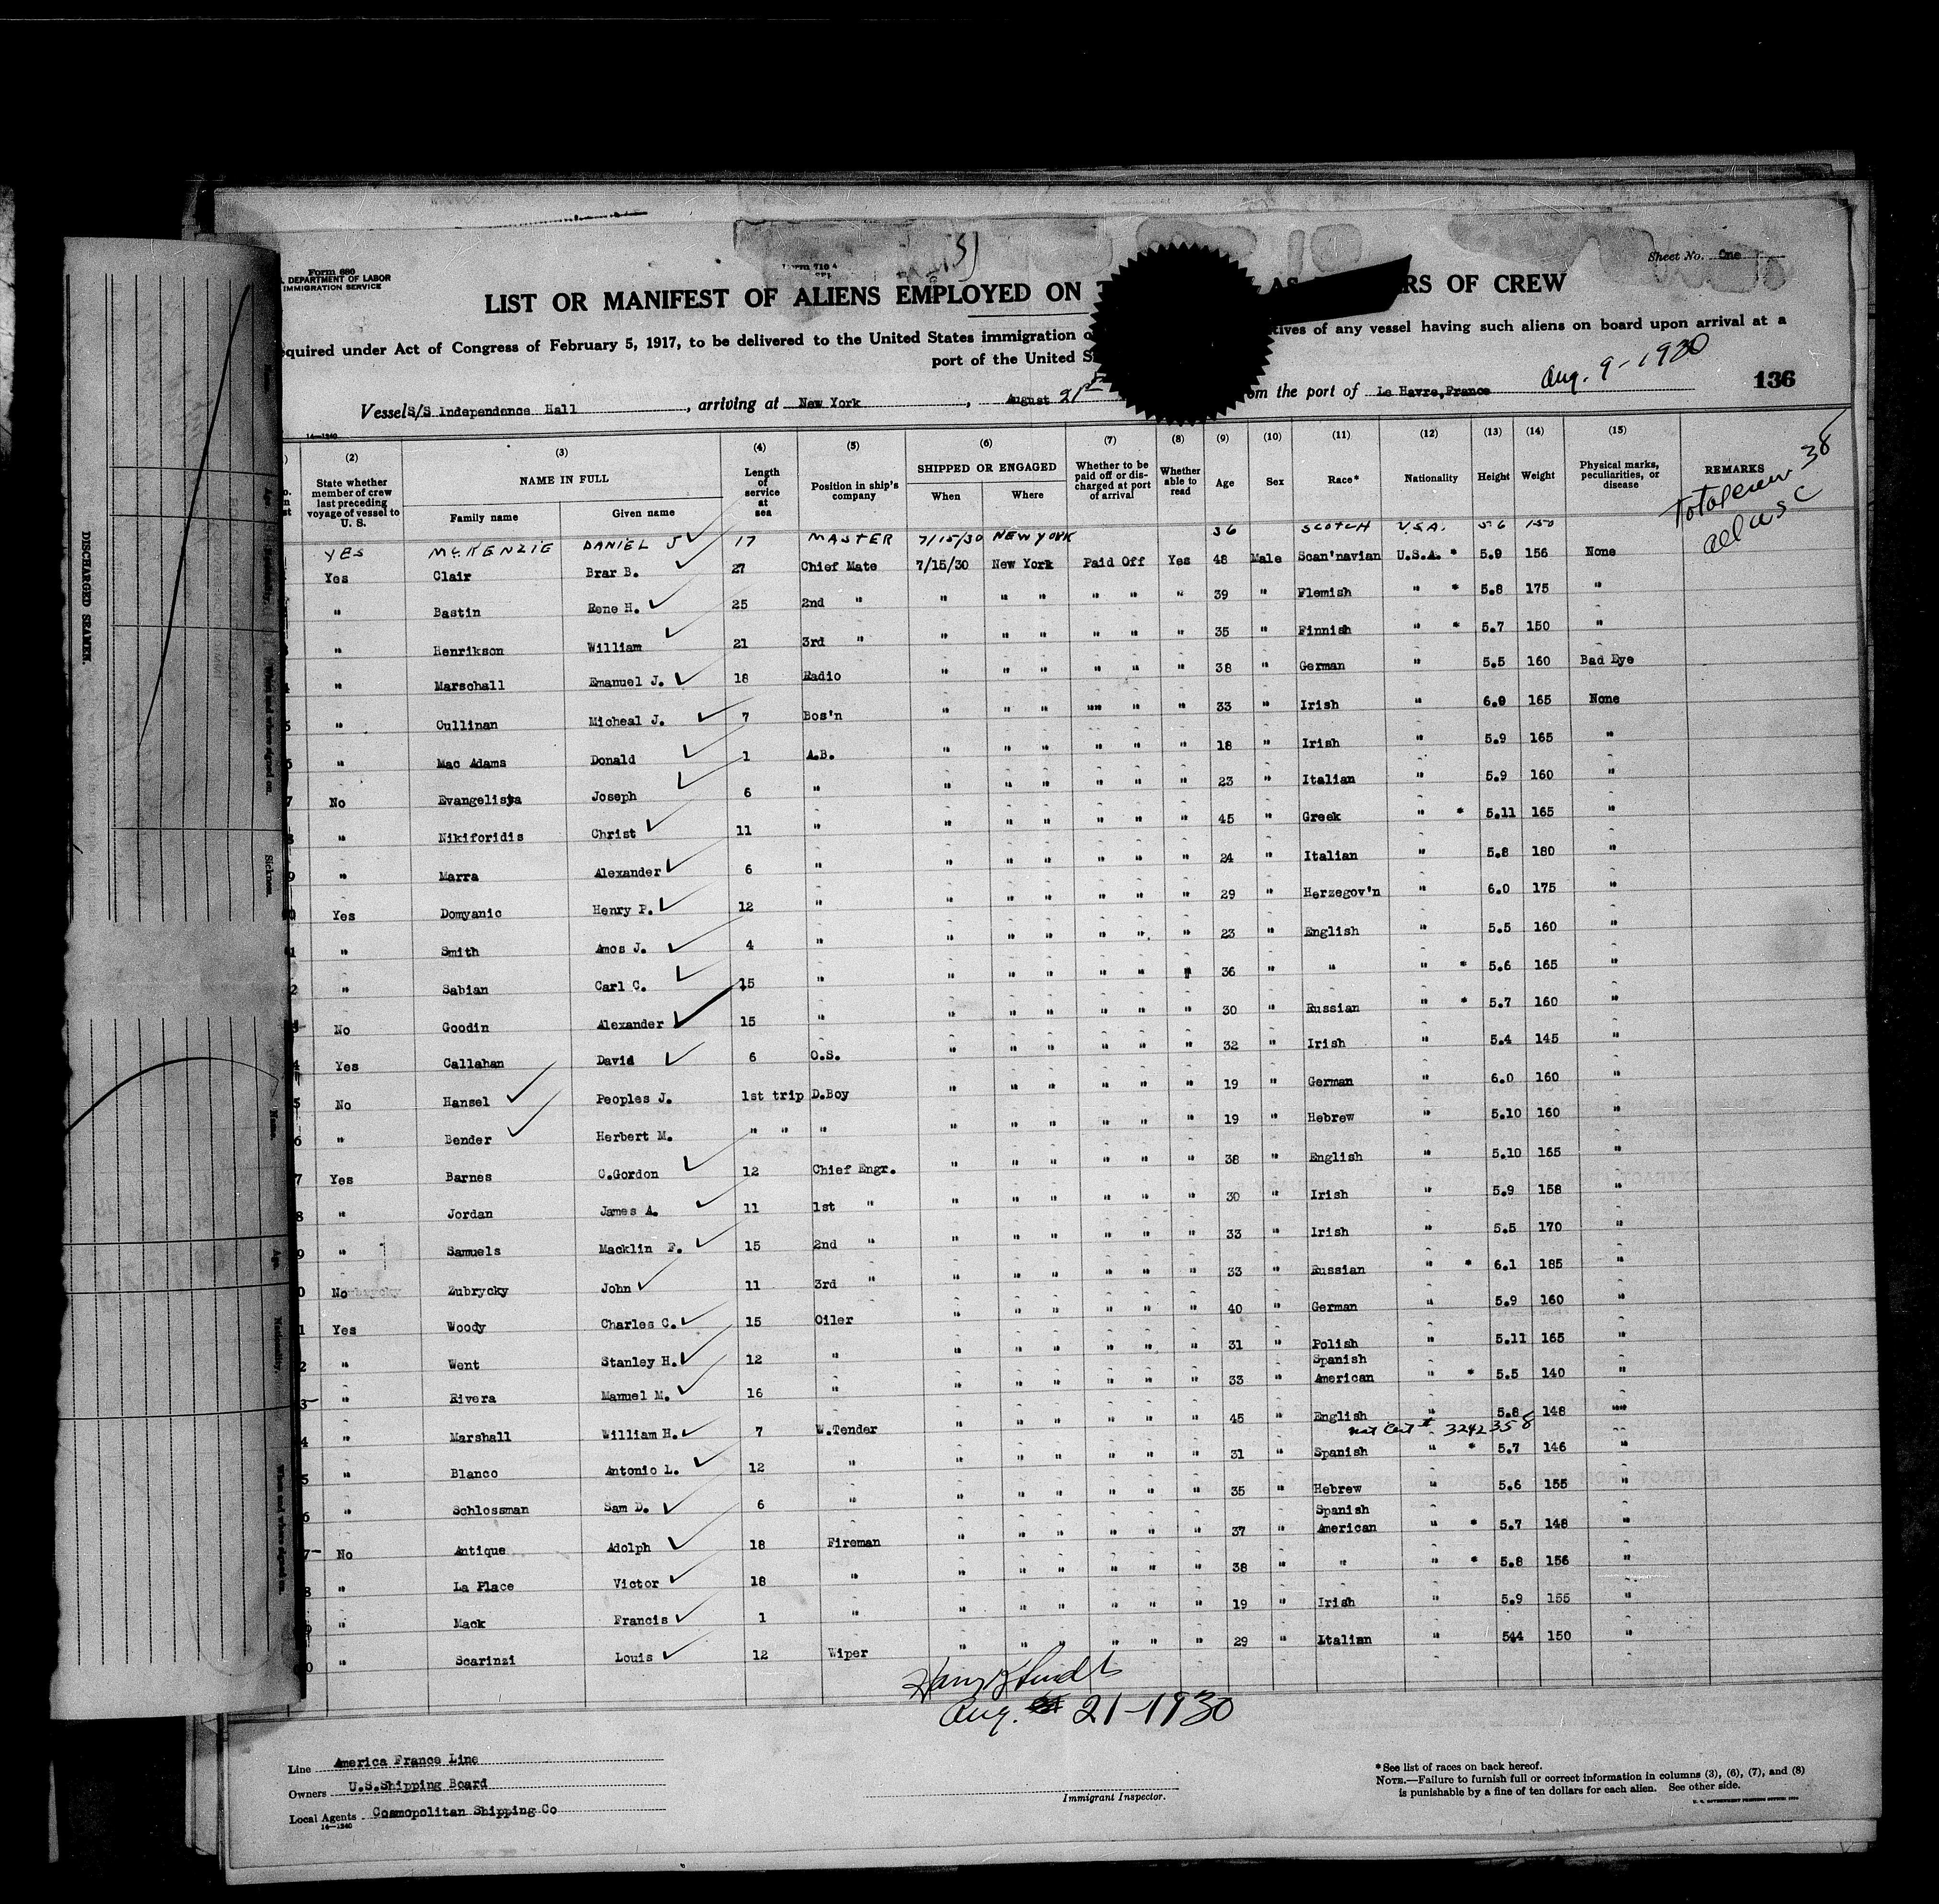 Form 680
DEPARTMENT OF LABOR
IMMIGRATION SERVICE
Sheet No. One
LIST OR MANIFEST OF ALIENS EMPLOYED ON AS RS OF CREW
equired under Act of Congress of February 5, 1917, to be delivered to the United States immigration o tives of any vessel having such aliens on board upon arrival at a
port of the United S
Vessel S/S Independence Hall, arriving at New York, August 21st om the port of Le Havre, France Aug. 9-1930
136
14—1240
(2) (3) (4) (5) (6) (7) (8) (9) (10) (11) (12) (13) (14) (15)
State whether member of crew last preceding voyage of vessel to U. S. NAME IN FULL Family name Given name Length of service at sea Position in ship's company SHIPPED OR ENGAGED When Where Whether to be paid off or discharged at port of arrival Whether able to read Age Sex Race* Nationality Height Weight Physical marks, peculiarities, or disease REMARKS
Total crew 38
all usc
YES McKENZIE DANIEL J 17 MASTER 7/15/30 NEW YORK 36 SCOTCH U.S.A. 5.6 150
Yes Clair Brar B. 27 Chief Mate 7/15/30 New York Paid Off Yes 48 Male Scan'navian U.S.A. * 5.9 156 None
" Bastin Rene H. 25 2nd " " " " " " " 39 " Flemish " * 5.8 175 "
" Henrikson William 21 3rd " " " " " " " 35 " Finnish " * 5.7 150 "
" Marschall Emanuel J. 18 Radio " " " " " " 38 " German " 5.5 160 Bad Eye
5 " Cullinan Micheal J. 7 Bos'n " " " " " " 33 " Irish " 6.0 165 None
" Mac Adams Donald 1 A.B. " " " " " " 18 " Irish " 5.9 165 "
7 No Evangelista Joseph 6 " " " " " " " 23 " Italian " 5.9 160 "
" Nikiforidis Christ 11 " " " " " " " 45 " Greek " * 5.11 165 "
9 " Marra Alexander 6 " " " " " " " 24 " Italian " 5.8 180 "
0 Yes Domyanic Henry P. 12 " " " " " " " 29 " Herzegov'n " 6.0 175 "
1 " Smith Amos J. 4 " " " " " " " 23 " English " 5.5 160 "
2 " Sabian Carl C. 15 " " " " " " " 36 " " " * 5.6 165 "
No Goodin Alexander 15 " " " " " " " 30 " Russian " * 5.7 160 "
4 Yes Callahan David 6 O.S. " " " " " " 32 " Irish " 5.4 145 "
5 No Hansel Peoples J. 1st trip D.Boy " " " " " " 19 " German " 6.0 160 "
6 " Bender Herbert M. " " " " " " " " " 19 " Hebrew " 5.10 160 "
7 Yes Barnes C.Gordon 12 Chief Engr. " " " " " " 38 " English " 5.10 165 "
8 " Jordan James A. 11 1st " " " " " " " 30 " Irish " 5.9 158 "
9 " Samuels Macklin F. 15 2nd " " " " " " " 33 " Irish " 5.5 170 "
0 No Zubrycky John 11 3rd " " " " " " " 33 " Russian " * 6.1 185 "
1 Yes Woody Charles C. 15 Oiler " " " " " " 40 " German " 5.9 160 "
2 " Went Stanley H. 12 " " " " " " " 31 " Polish " 5.11 165 "
3 " Rivera Manuel M. 16 " " " " " " " 33 " Spanish American " * 5.5 140 "
4 " Marshall William H. 7 W.Tender " " " " " " 45 " English " 5.8 148 "
nat Cert # 3242358
5 " Blanco Antonio L. 12 " " " " " " " 31 " Spanish " * 5.7 146 "
6 " Schlossman Sam D. 6 " " " " " " " 35 " Hebrew " 5.6 155 "
7 No Antique Adolph 18 Fireman " " " " " " 37 " Spanish American " * 5.7 148 "
8 " La Place Victor 18 " " " " " " " 38 " " " * 5.8 156 "
9 " Mack Francis 1 " " " " " " " 19 " Irish " 5.9 155 "
0 " Scarinzi Louis 12 Wiper " " " " " " 29 " Italian " 5.4 150 "
Aug. 21-1930
Line America France Line
Owners U.S.Shipping Board
Local Agents Cosmopolitan Shipping Co
14—1240
Immigrant Inspector.
*See list of races on back hereof.
NOTE.—Failure to furnish full or correct information in columns (3), (6), (7), and (8)
is punishable by a fine of ten dollars for each alien. See other side.
DISCHARGED SEAMEN.